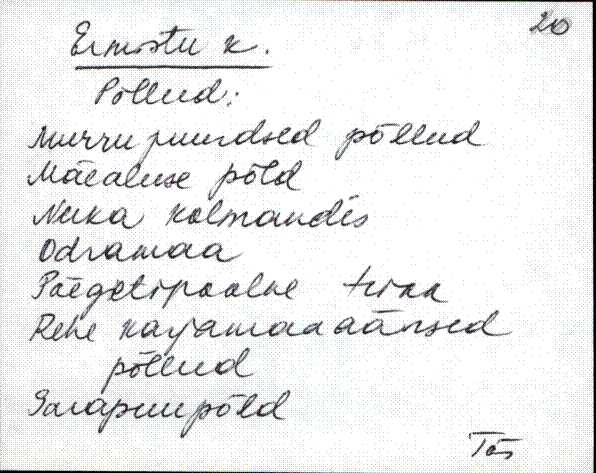 20
Ermistu k.
Põllud:
Murru juurdsed põllud
Mäealuse põld
Neka kolmandis
Odramaa
Päegetipoolne
Rehe karjamaaäärsed
põllud
Sarapuupõld